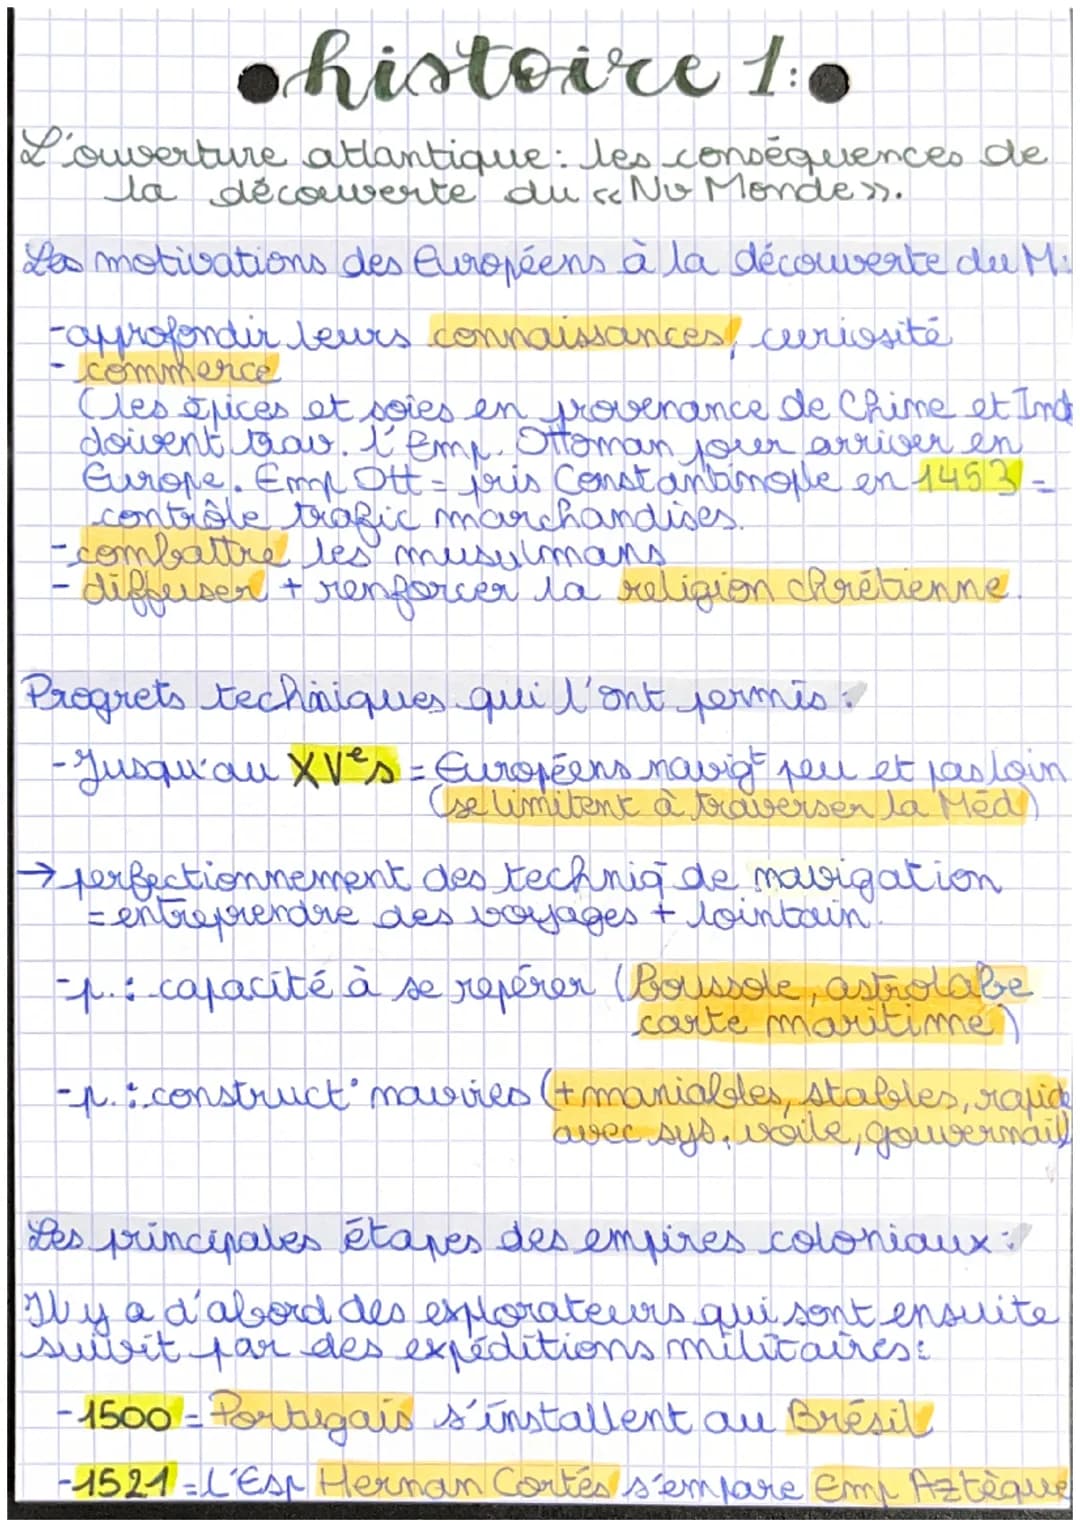 histoire 1:
L'ouverture atlantique: les conséquences de
la découverte du «Nv Monde».
Les motivations des Européens à la découverte du M.
-approfondir leurs connaissances, curiosité
- commerce
(les épices et soies en provenance de Chine et Ind
doivent trav. l'Emp. Ottoman pour arriver en
Europe. Emp Ott = pris Constantinople en 1453 =
contrôle trafic marchandises.
-combattre les musulmans
- diffuser + renforcer la religion chrétienne.
Progrets techniques qui l'ont permis:
-Jusqu'au XVes = Européens navigt peu et pas loin
(se limitent à traverser la Méd)
→ perfectionnement des techniq de navigation
= entreprendre des voyages + lointain.
-p.: capacité à se repérer (Boussole, astrolabe
carte maritime)
-p.: construct° navires (+ maniables, stables, rapide
avec sys. voile, gouvernail
Les principales étapes des empires coloniaux:
Il y a d'abord des explorateurs qui sont ensuite
suivit par des expéditions militaires:
-1500 = Portugais s'installent au Brésil
-1521 = L'Esp Hernan Cortés s'empare Emp Aztèque